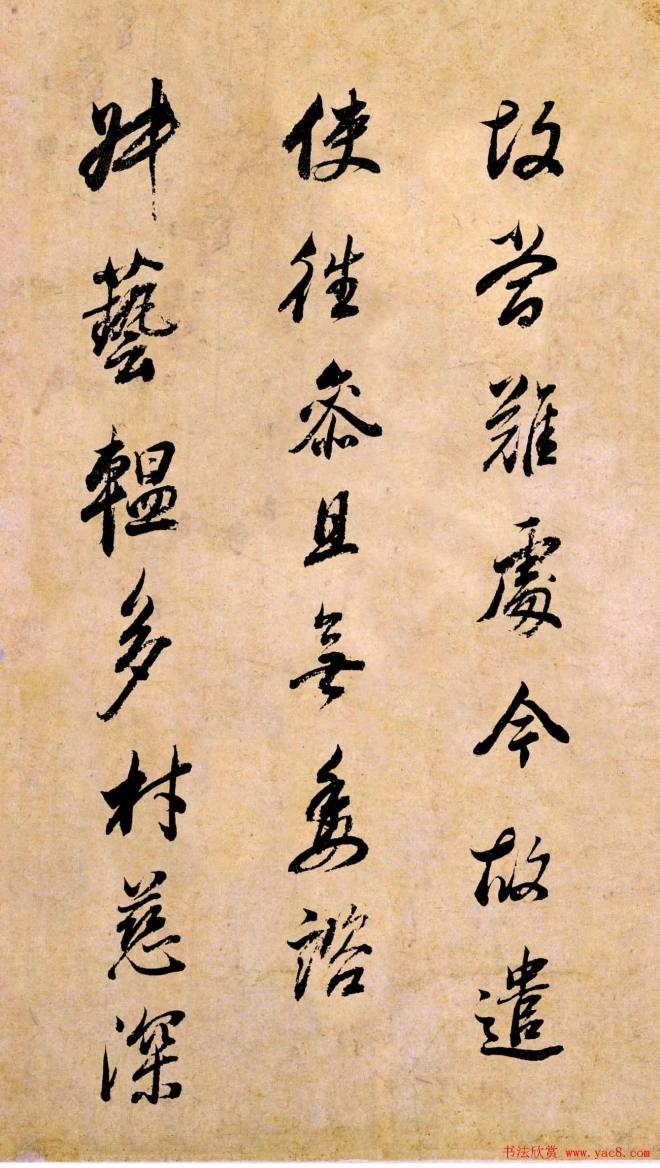 故嘗難處今故遣
使往參且無委諮
叔藝韞多材慈深
书法欣赏 www.yac8.com